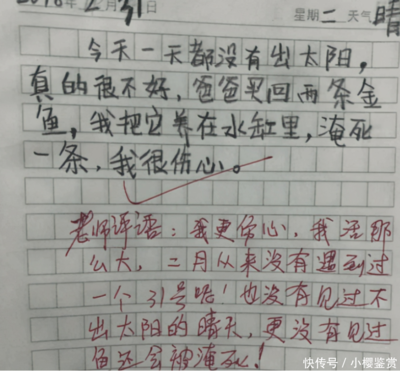 2018年2月31日 星期二 天气晴
今天一天都没有出太阳,
真的很不好,爸爸买回两条金
鱼,我把它养在水缸里,淹死
一条,我很伤心。
老师评语:我更伤心,我活那
么大,二月从来没有遇到过
一个31号哈!也没有见过不
出太阳的晴天,更没有见过
鱼还会被淹死!
快传号/小樱鉴赏